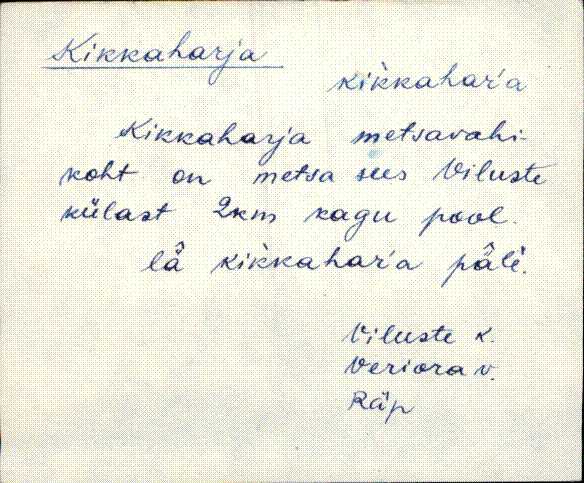 Kikkaharja
kik̀kahaŕa
Kikkaharja metsavahi-
koht on metsa sees Viluste
külast 2km kagu pool.
lä̂ kik̀kahaŕa pä̂lè.
Viluste k.
Veriora v.
Räp